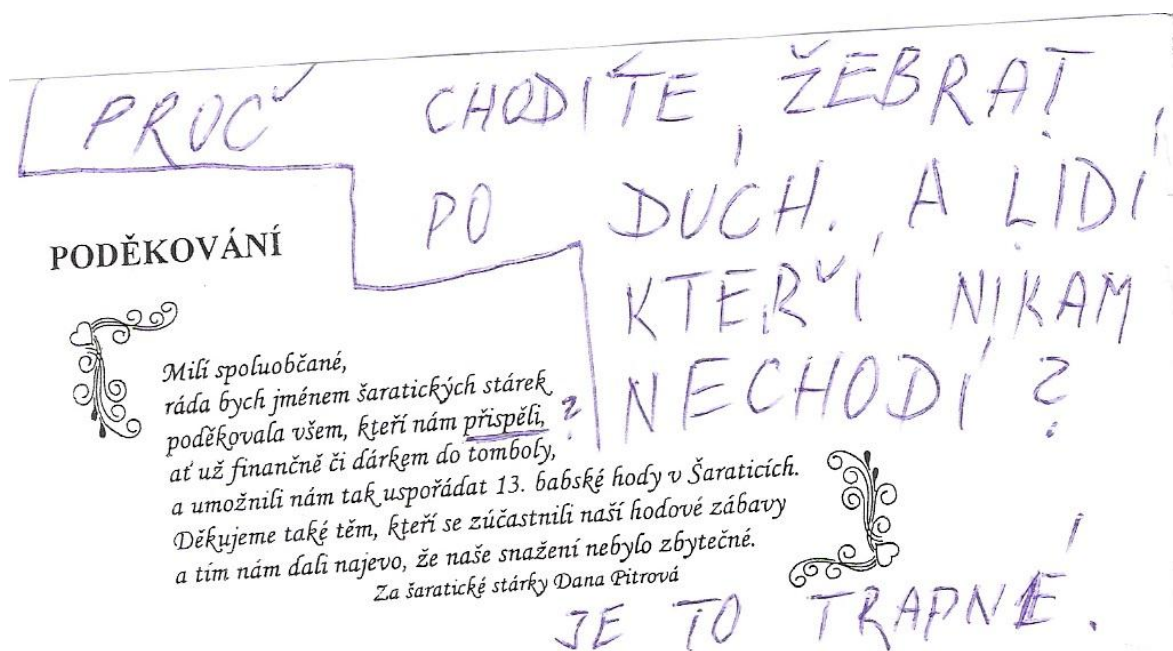 PROČ CHODÍTE ŽEBRAT,
PO DŮCH. A LIDÍ,
KTEŘÍ NIKAM
NECHODÍ?
PODĚKOVÁNÍ
Milí spoluobčané,
ráda bych jménem šaratických stárek
poděkovala všem, kteří nám přispěli, ?
ať už finančně či dárkem do tomboly,
a umožnili nám tak uspořádat 13. babské hody v Šaraticích.
Děkujeme také těm, kteří se zúčastnili naší hodové zábavy
a tím nám dali najevo, že naše snažení nebylo zbytečné.
Za šaratické stárky Dana Pitrová
JE TO TRAPNÉ.